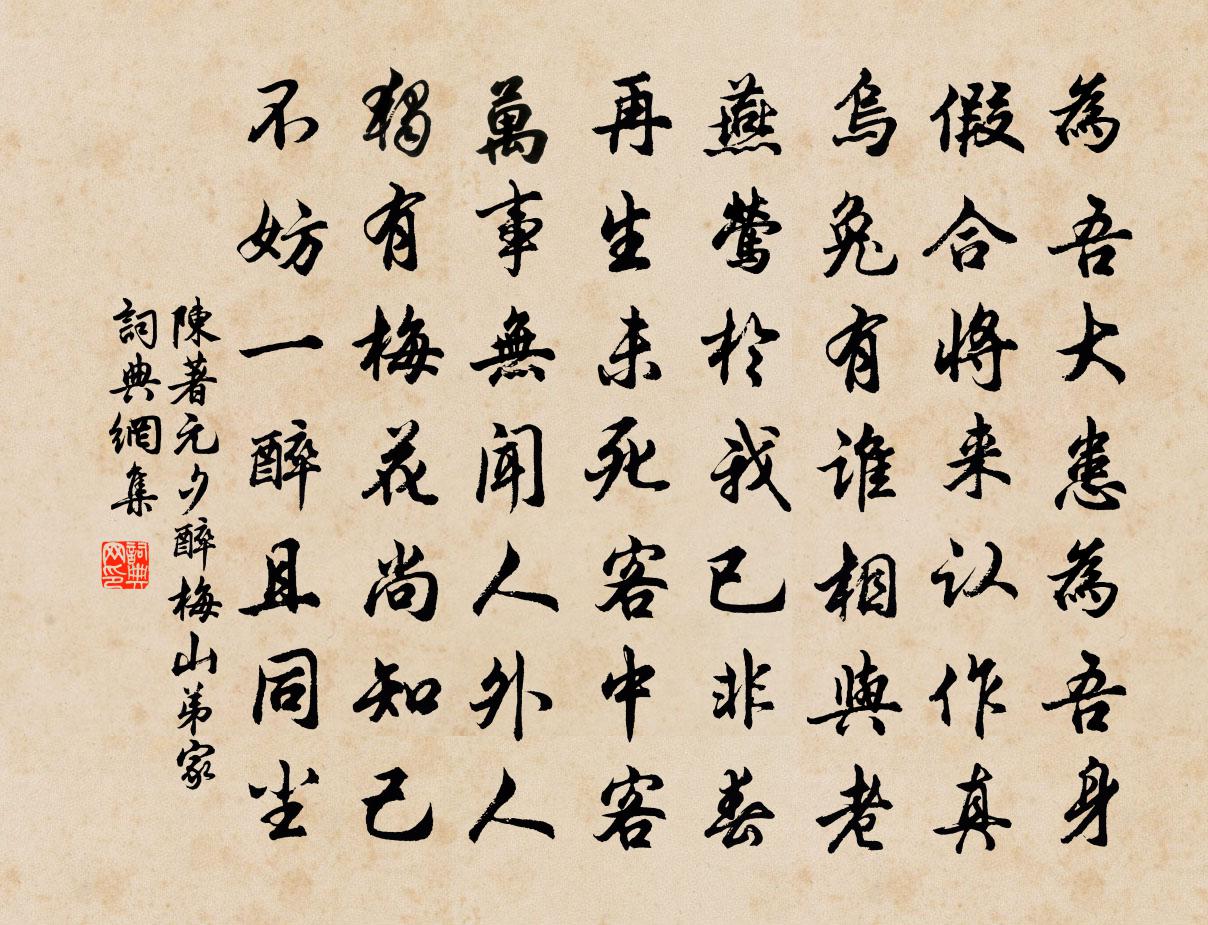 為吾大患為吾身
假合將来认作真
烏兔有誰相與老
燕鶯於我已非春
再生未死客中客
萬事無聞人外人
獨有梅花尚知己
不妨一醉且同尘
陳著元夕醉梅山弟家
詞典網集
詞典网印